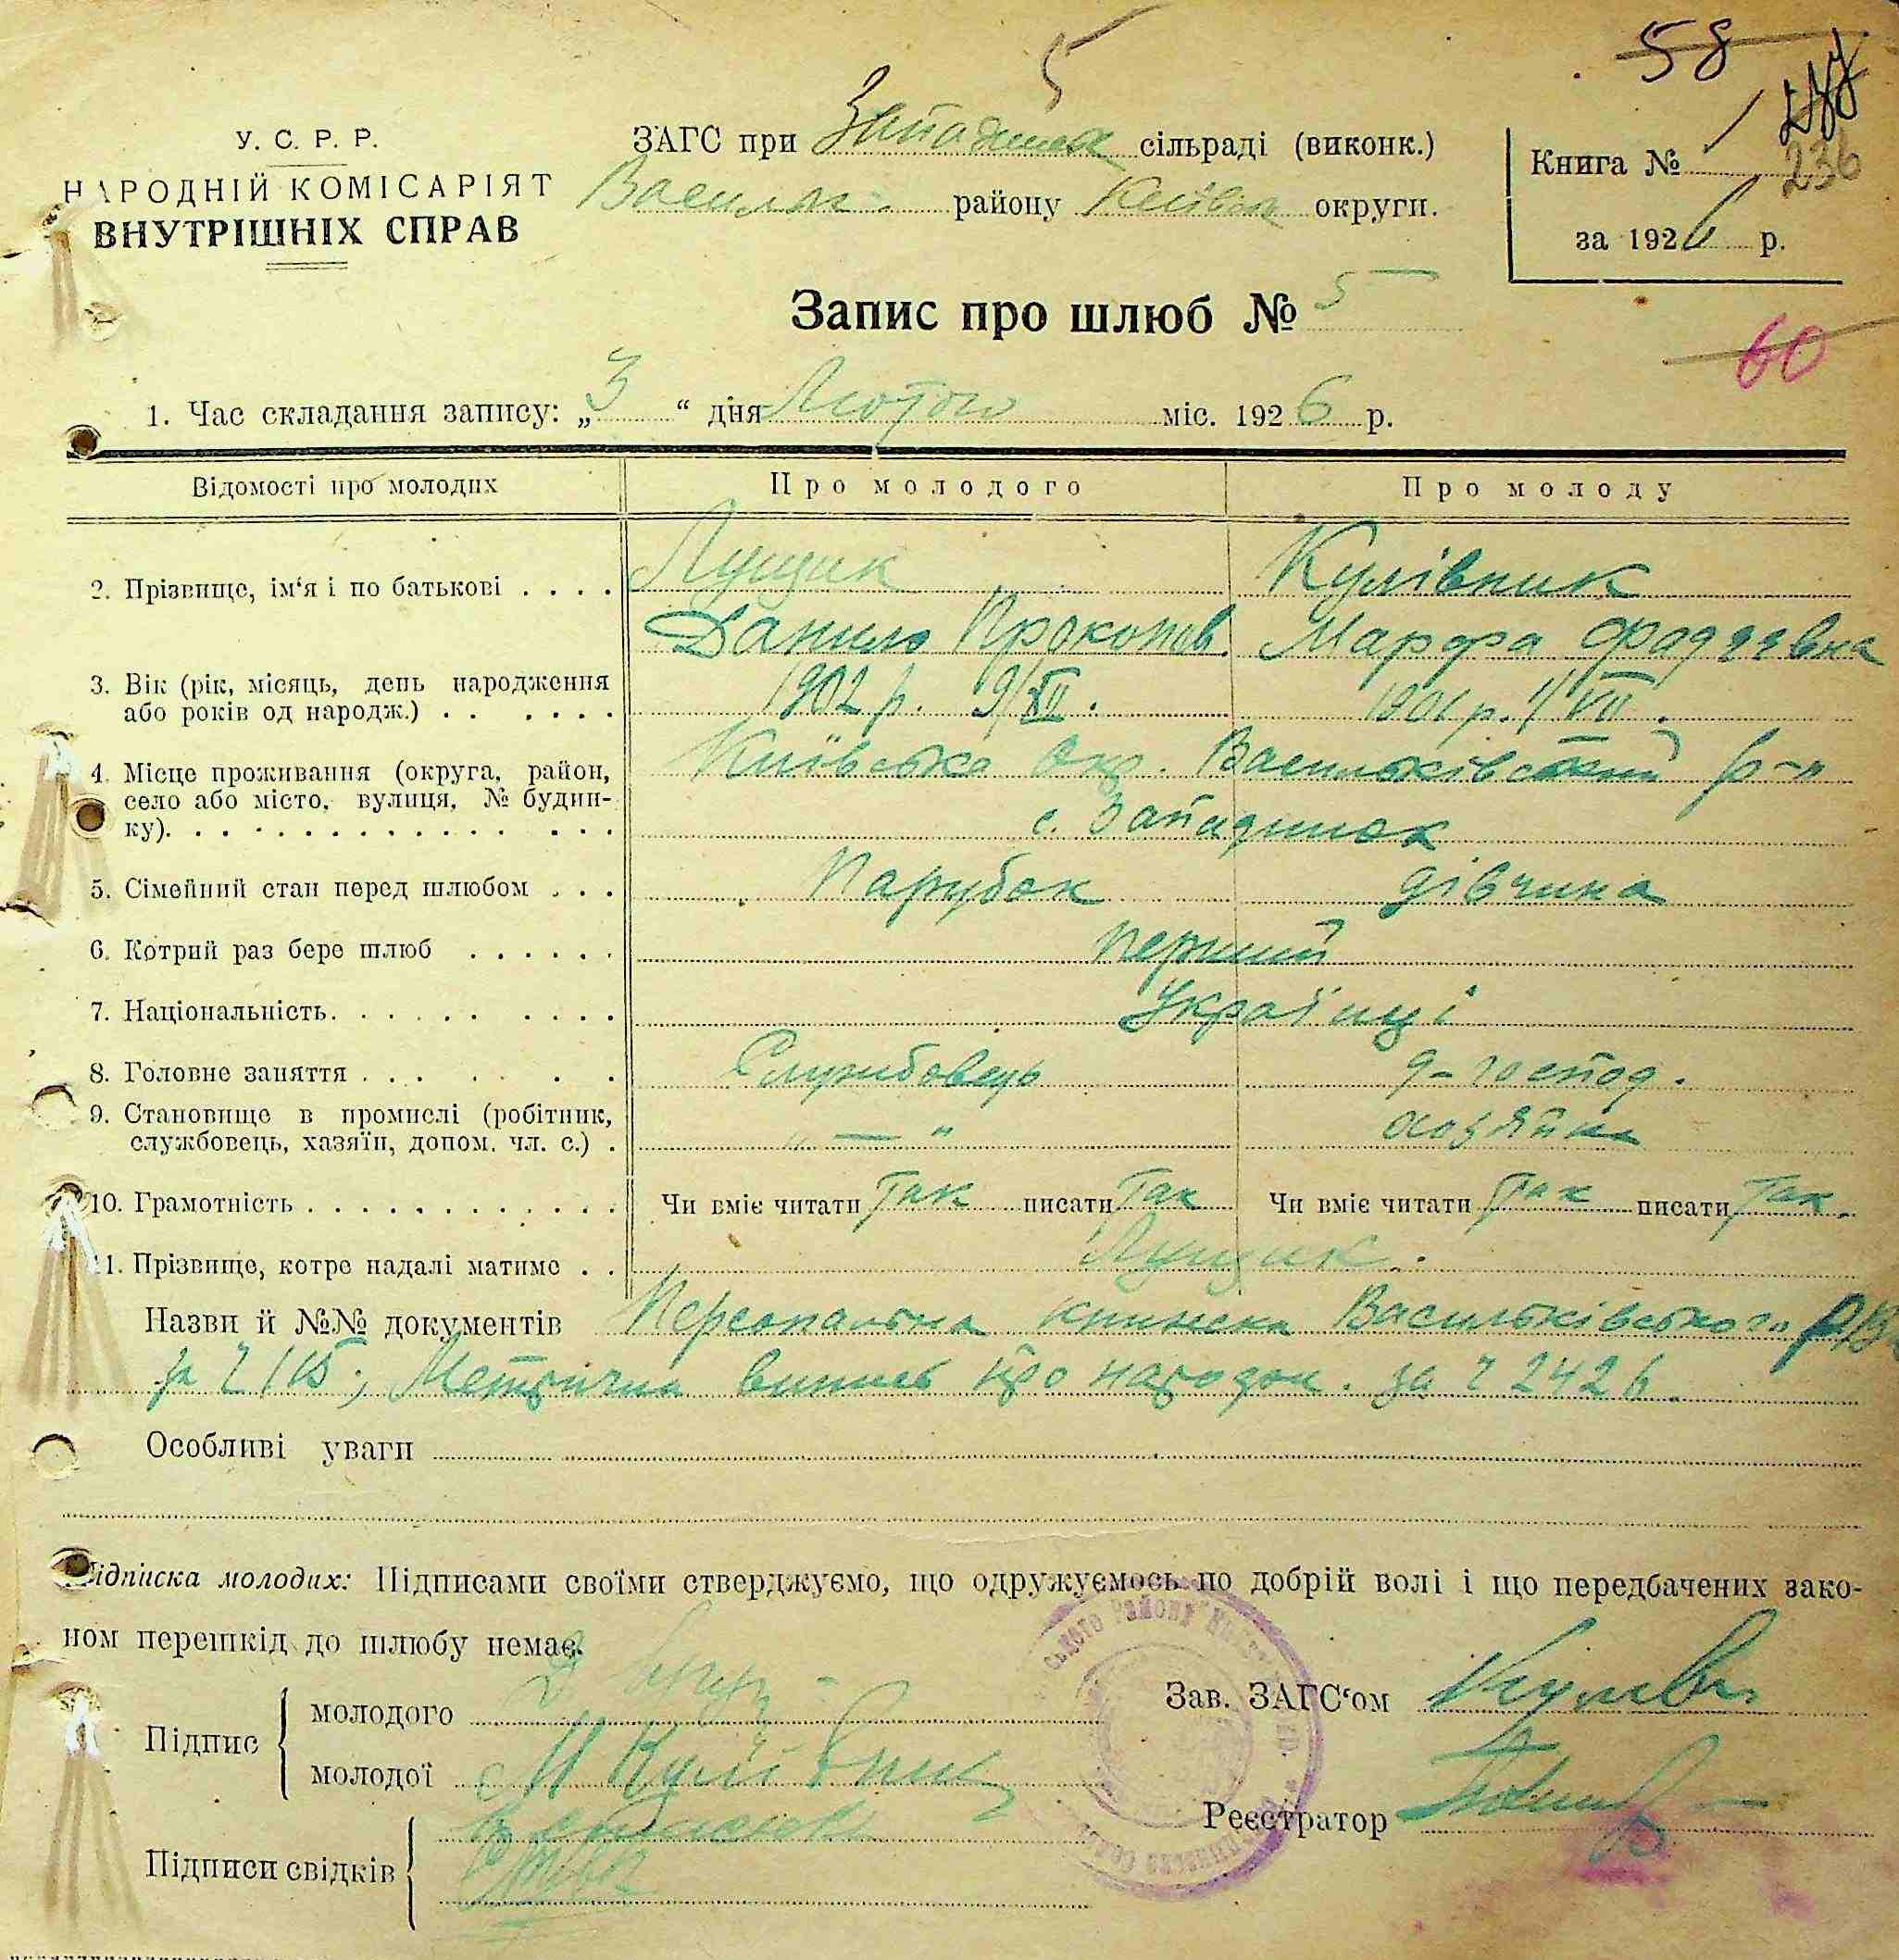 58
5
236
У. С. Р. Р.
НАРОДНІЙ КОМІСАРІЯТ
ВНУТРІШНІХ СПРАВ
ЗАГС при Западинск сільраді (виконк.)
Васильк. району Київськ округи.
Книга № 1
за 1926 р.
Запис про шлюб № 5
60
1. Час складання запису: „3“ дня Лютого міс. 1926 р.
Відомості про молодих Про молодого Про молоду
2. Прізвище, ім‘я і по батькові . . . . Лущик Кулівник
Данило Прокопов. Марфа Фадеевна
3. Вік (рік, місяць, день народження 1902 р. 9/XII. 1901 р. 1/VII.
або років од народж.) . . . . . .
4. Місце проживання (округа, район, Київська Окр. Васильківський р-н
село або місто, вулиця, № будин-
ку). . . . . . . . . . . . . . . с. Западинок
5. Сімейний стан перед шлюбом . . . Парубок дівчина
6. Котрий раз бере шлюб . . . . . . перший
7. Національність. . . . . . . . . . Українці
8. Головне заняття . . . . . . . Службовець д-господ.
9. Становище в промислі (робітник,
службовець, хазяїн, допом. чл. с.) . „ — “ хозяйка
10. Грамотність . . . . . . . . . . . . Чи вміє читати Так писати Так Чи вміє читати Так писати Так.
11. Прізвище, котре надалі матиме . . Лущик.
Назви й №№ документів Персональна книжка Васильківського РВК
за ч 115; Метрична випись про народж. за ч 2426.
Особливі уваги
Підписка молодих: Підписами своїми стверджуємо, що одружуємось по добрій волі і що передбачених зако-
ном перешкід до шлюбу немає.
Підпис
молодого Д Лущ
молодої М Кулівник
Зав. ЗАГС‘ом
Реєстратор
Підписи свідків